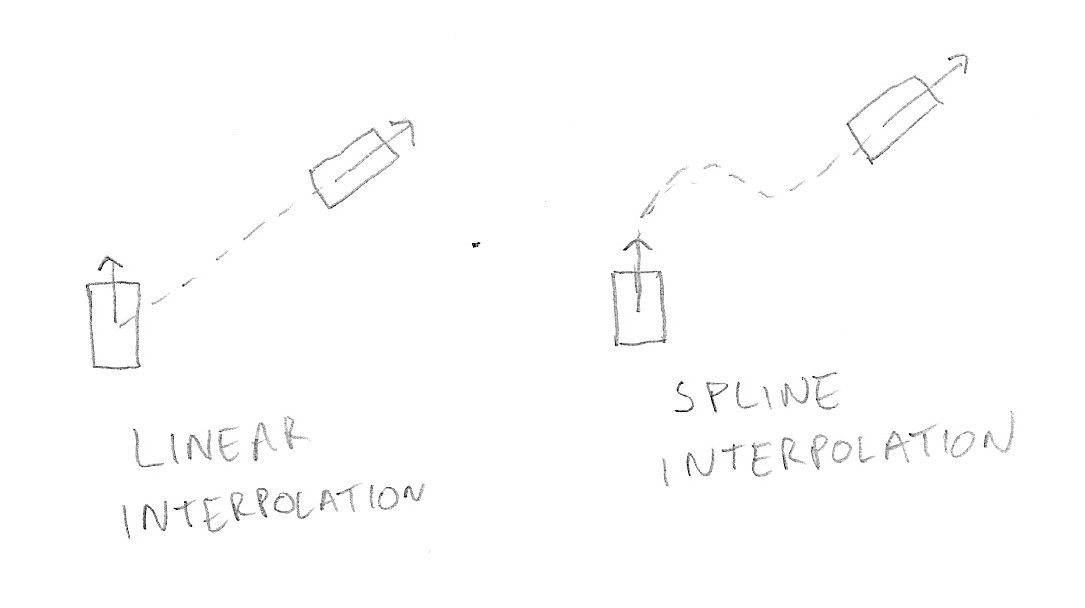 LINEAR
INTERPOLATION
SPLINE
INTERPOLATION